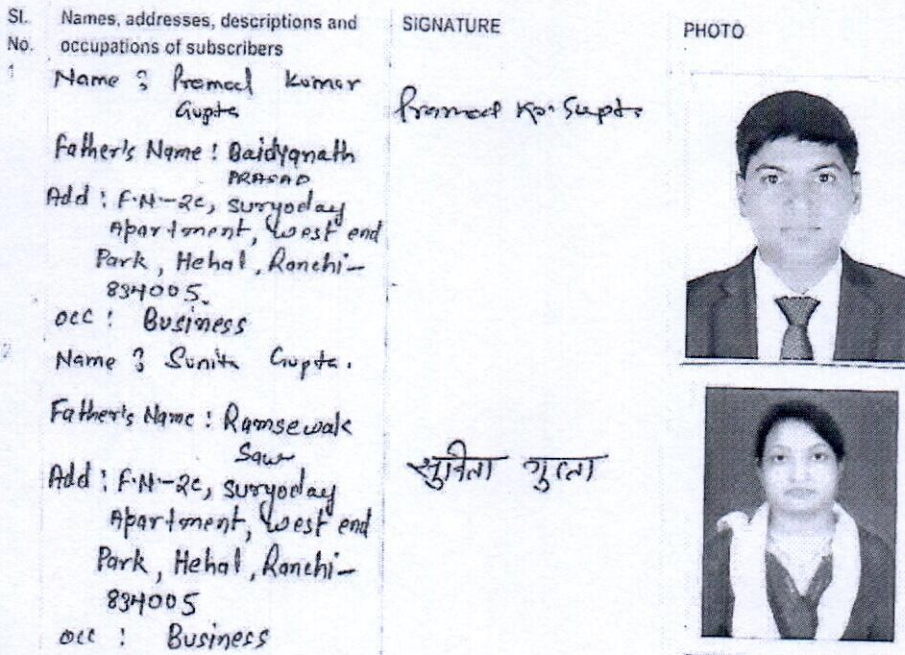 Sl. No. Names, addresses, descriptions and occupations of subscribers SIGNATURE PHOTO
1
Name : Pramod Kumar
Gupta
Pramod Kr. Gupta
Father's Name : Baidyanath
PRASAD
Add : F.N-2C, Suryoday
Apartment, West end
Park, Hehal, Ranchi-
834005.
occ : Business
2
Name : Sunita Gupta.
Father's Name : Ramsewak
Saw
सुनिता गुप्ता
Add : F.N-2C, Suryoday
Apartment, West end
Park, Hehal, Ranchi-
834005
occ : Business